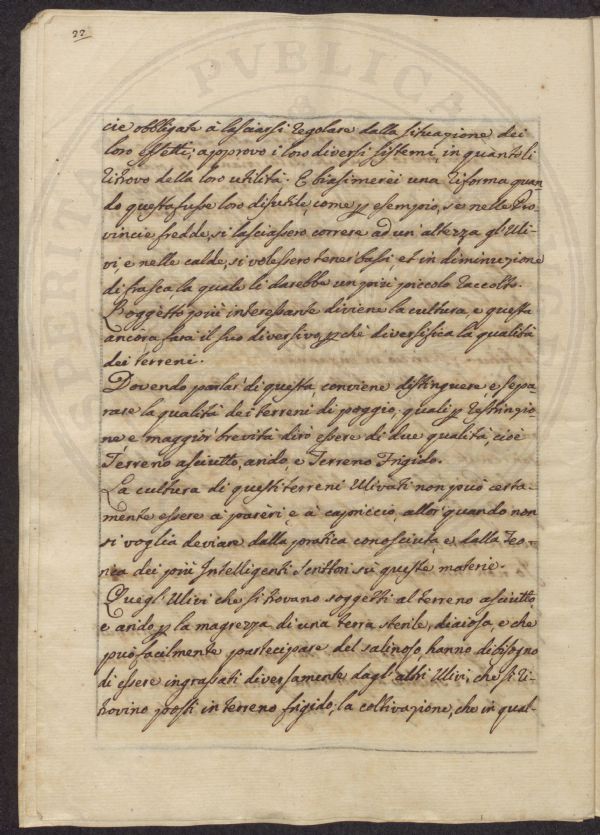 22
cie obbligate à lasciarsi regolare dalla situazione dei
loro effetti; approvo i loro diversi sistemi, in quanto li
ritrovo della loro utilità. E biasimerei una riforma quan
do questa fusse loro disutile, come p esempio, se nelle Pro-
vincie fredde, si lasciassero correre ad un'altezza gl'Uli-
vi, e nelle calde, si volessero tener bassi, et in diminuzione
di frasca, la quale li darebbe un più piccolo raccolto.
L'oggetto più interessante diviene la cultura, e questa
ancora farà il suo diversivo, p chè diversifica la qualità
dei terreni.
Dovendo parlar di questa, conviene distinguere, e sepa-
rare la qualità dei terreni di poggio, quali p restrinzio-
ne, e maggior brevità dirò essere di due qualità, cioè
Terreno asciutto, arido, e Terreno Frigido.
La cultura di questi terreni Ulivati non può certa-
mente essere a pareri, e à capriccio, allor quando non
si voglia deviare dalla pratica conosciuta, e dalla Teo-
rica dei più Intelligenti Scrittori su queste materie.
Quegl'Ulivi che si trovano soggetti al terreno asciutto,
e arido, p la magrezza di una terra sterile, diaiosa, e che
può facilmente partecipare del salinoso, hanno di bisogno
di essere ingrassati diversamente dagl'altri Ulivi, che si ri-
trovino posti in terreno frigido; la coltivazione, che in qual-